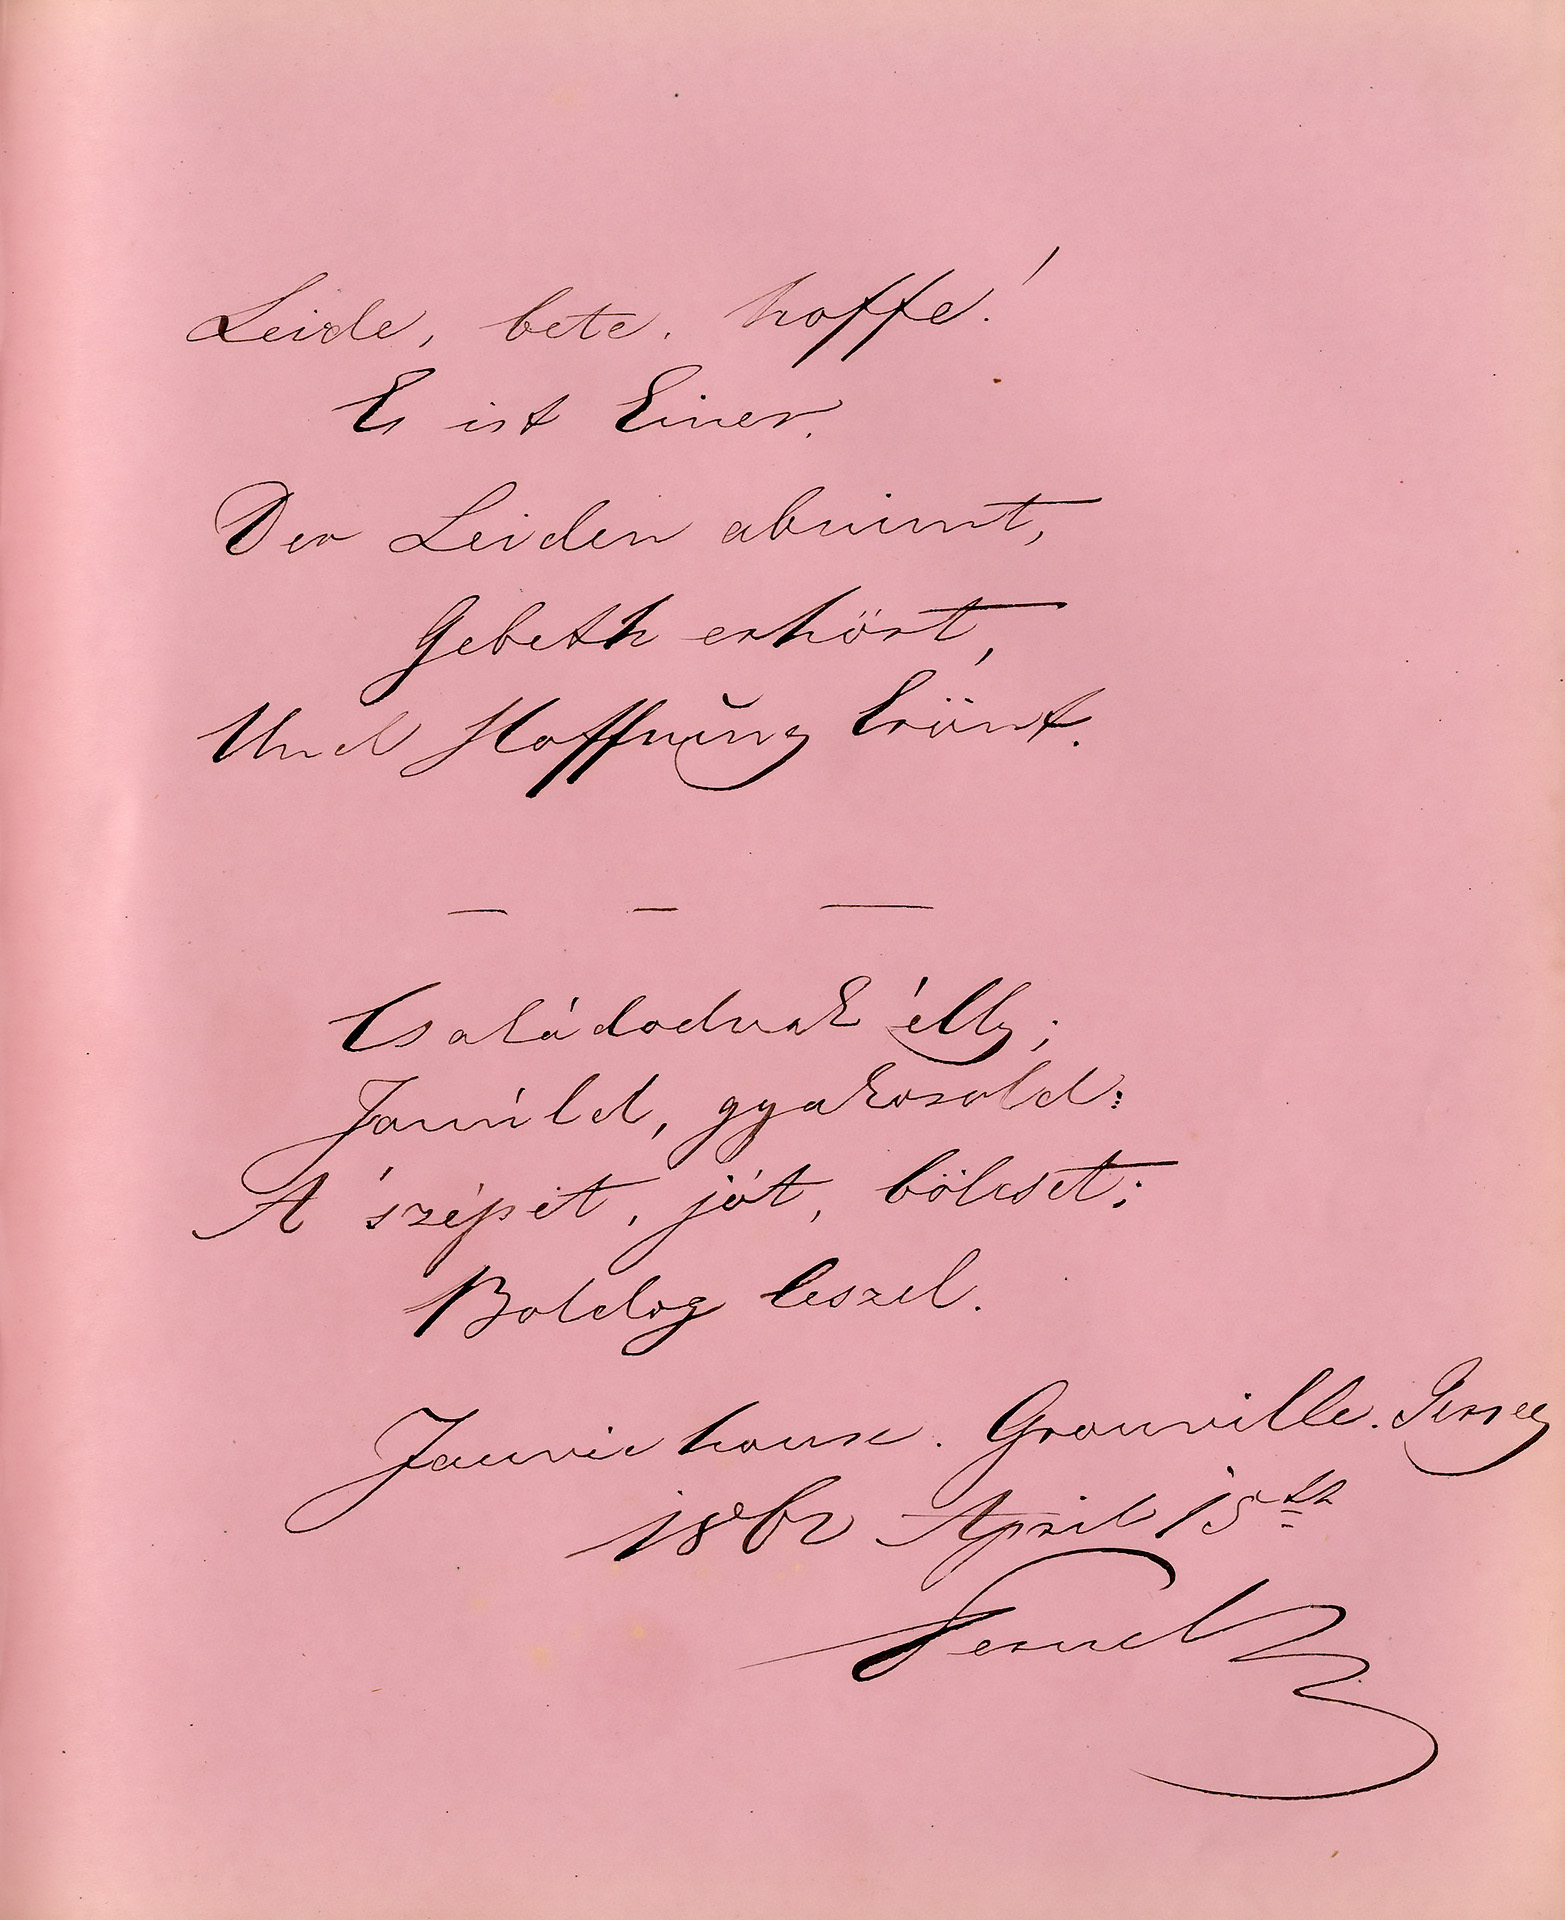 Leide, bete, hoffe!
Es ist Einer,
Der Leiden abnimt,
Gebeth erhört,
Und Hoffnung krönt.
Családodnak élly;
Tanúld, gyakorold:
A' szépet, jót, bölcset;
Boldog leszel.
Janvric house. Grouville. Jersey
1862 April 15th